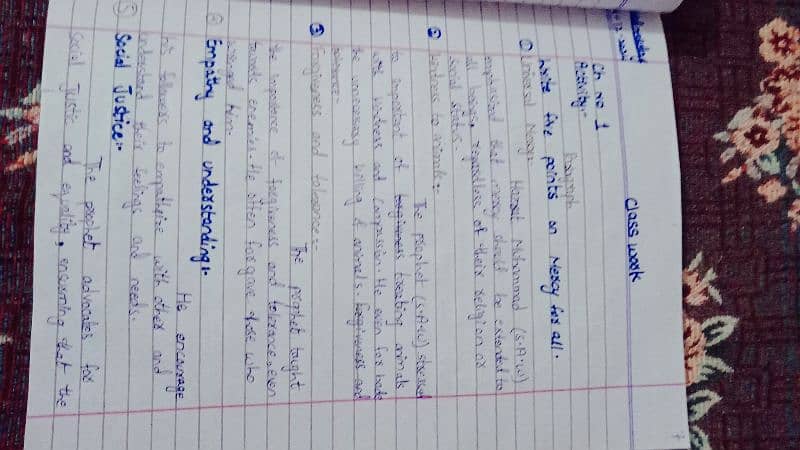 Class work
Ch no 1
Activity:-
Paragraph
Write five points on Mercy for all.
① Universal Mercy:-
Hazrat Muhammad (S.A.W)
emphasized that mercy should be extended to
all beings, regardless of their religion or
social status.
② Kindness to animals:-
The prophet (S.A.W) stressed
to important of treating animals
with kindness and compassion. He even for bade
the unnecessary killing of animals. forgiveness and
③ Forgiveness and tolerance:-
The prophet taught
the importance of forgiveness and tolerance, even
towards enemies. He often forgave those who
wronged him.
④ Empathy and understanding:-
He encourage
his followers to empathize with other and
understand their feelings and needs.
⑤ Social Justice:-
The prophet advocates for
social Justic and equality, ensuring that the